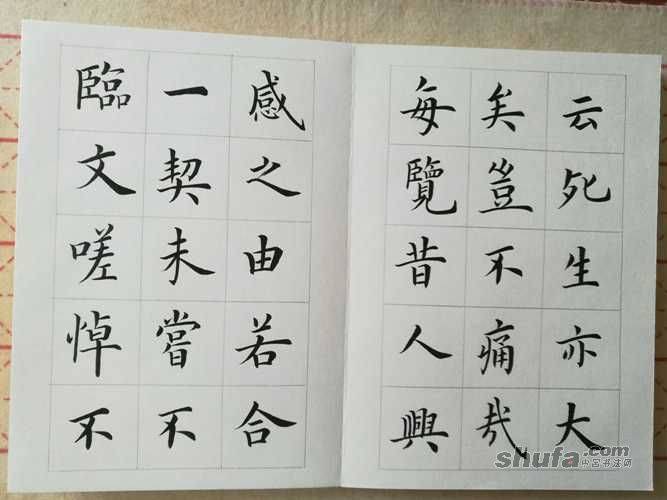 云死生亦大
矣豈不痛哉
每覽昔人興
感之由若合
一契未嘗不
臨文嗟悼不
shufa.com
中国书法网